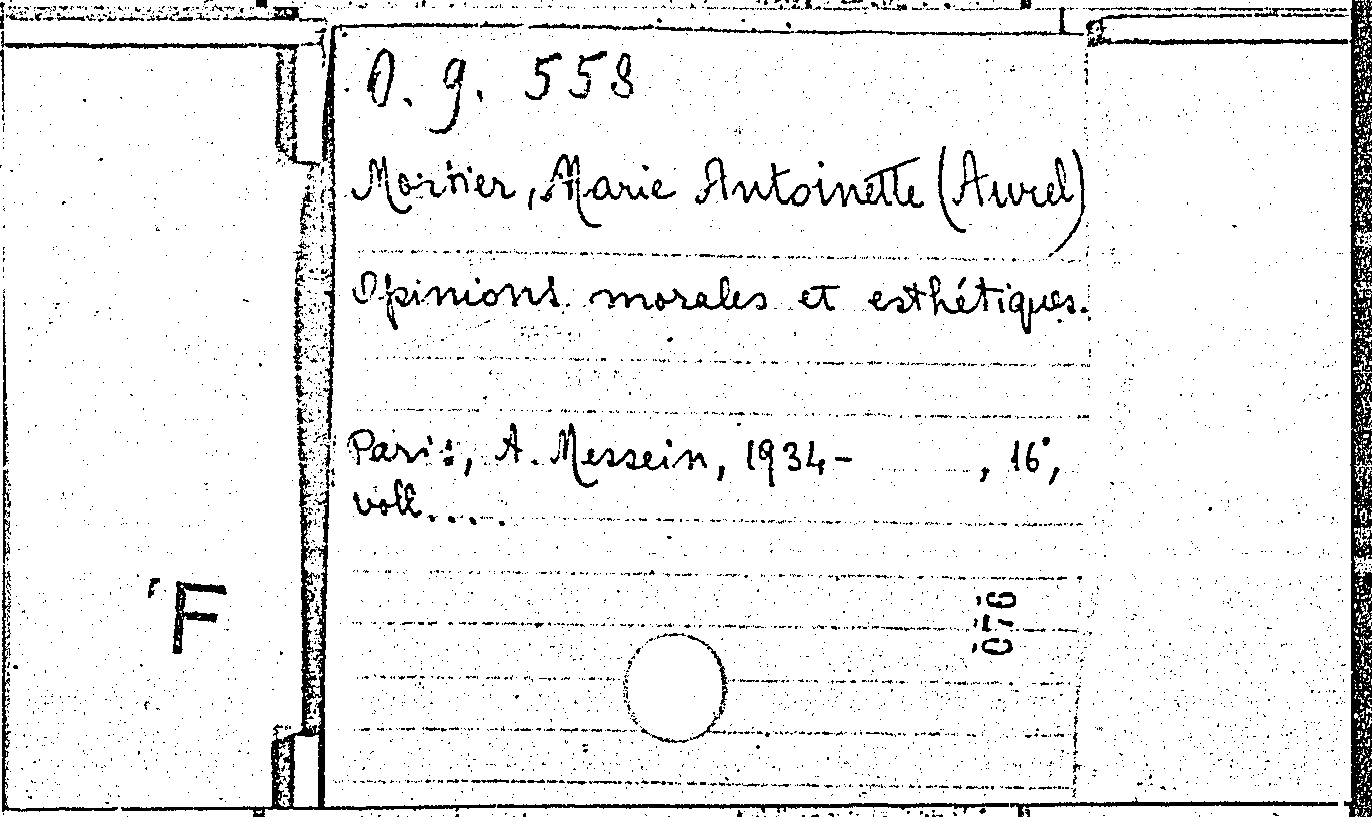 O. g. 558
Mortier, Marie Antoinette (Aurel)
Opinions morales et esthétiques.
Paris, A. Messein, 1934- , 16°,
voll....
F
076